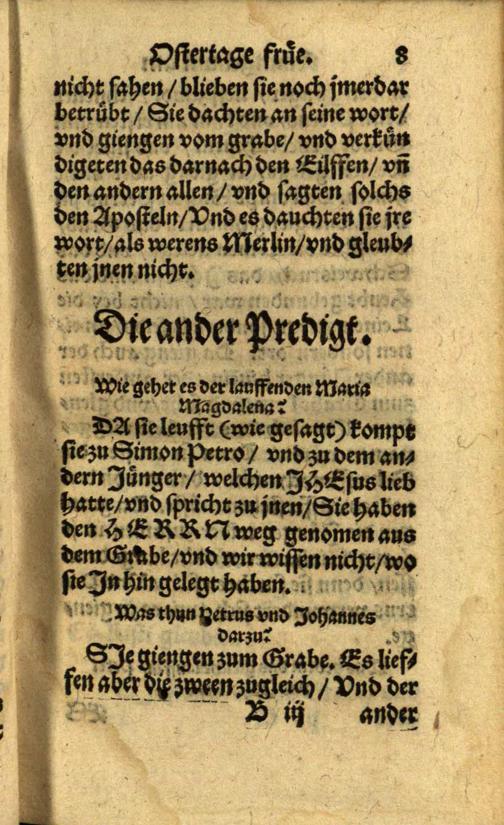 Ostertage früe. 8
nicht sahen / blieben sie noch jmerdar
betrübt / Sie dachten an seine wort/
vnd giengen vom grabe/ vnd verkün
digeten das darnach den Eilffen/ vñ
den andern allen / vnd sagten solchs
den Aposteln/Vnd es dauchten sie jre
wort/als werens Merlin/vnd gleub⸗
ten jnen nicht.
Die ander Predigt.
Wie gehet es der lauffenden Maria
Magdalena?
DA sie leufft (wie gesagt) kompt
sie zu Simon Petro / vnd zu dem an⸗
dern Jünger / welchen JHEsus lieb
hatte/vnd spricht zu jnen/Sie haben
den HERRN weg genomen aus
dem Grabe/vnd wir wissen nicht/wo
sie Jn hin gelegt haben.
Was thun Petrus vnd Johannes
darzu?
SJe giengen zum Grabe. Es lief⸗
fen aber die zween zugleich / Vnd der
B iij ander